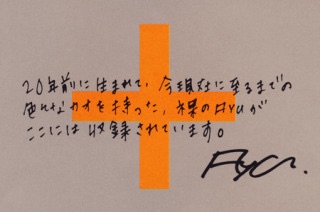 20年前に生まれて、今現在に至るまでの
色々なカオを持った、裸のAYUが
ここには収録されています。
Ayu.